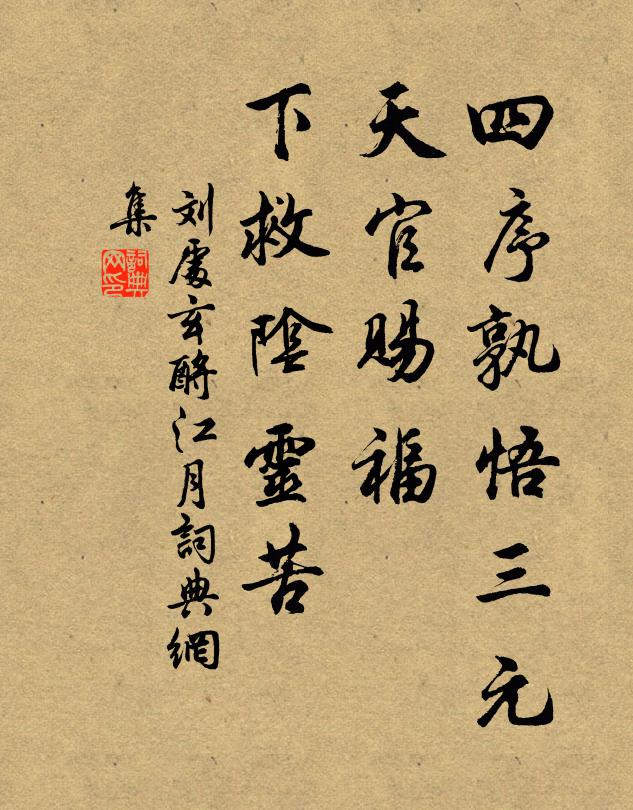 四序孰悟三元
天官賜福
下救陰靈苦
刘處玄酹江月詞典網
集
詞典
网印